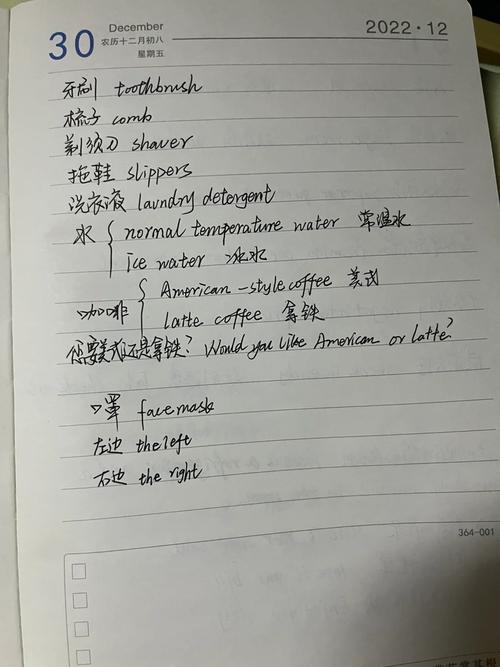 30 December 2022·12
农历十二月初八
星期五
牙刷 toothbrush
梳子 comb
剃须刀 shaver
拖鞋 slippers
洗衣液 laundry detergent
水 { normal temperature water 常温水
ice water 冰水
咖啡 { American-style coffee 美式
latte coffee 拿铁
你要美式还是拿铁? Would you like American or latte?
口罩 face mask
左边 the left
右边 the right
364-001
30